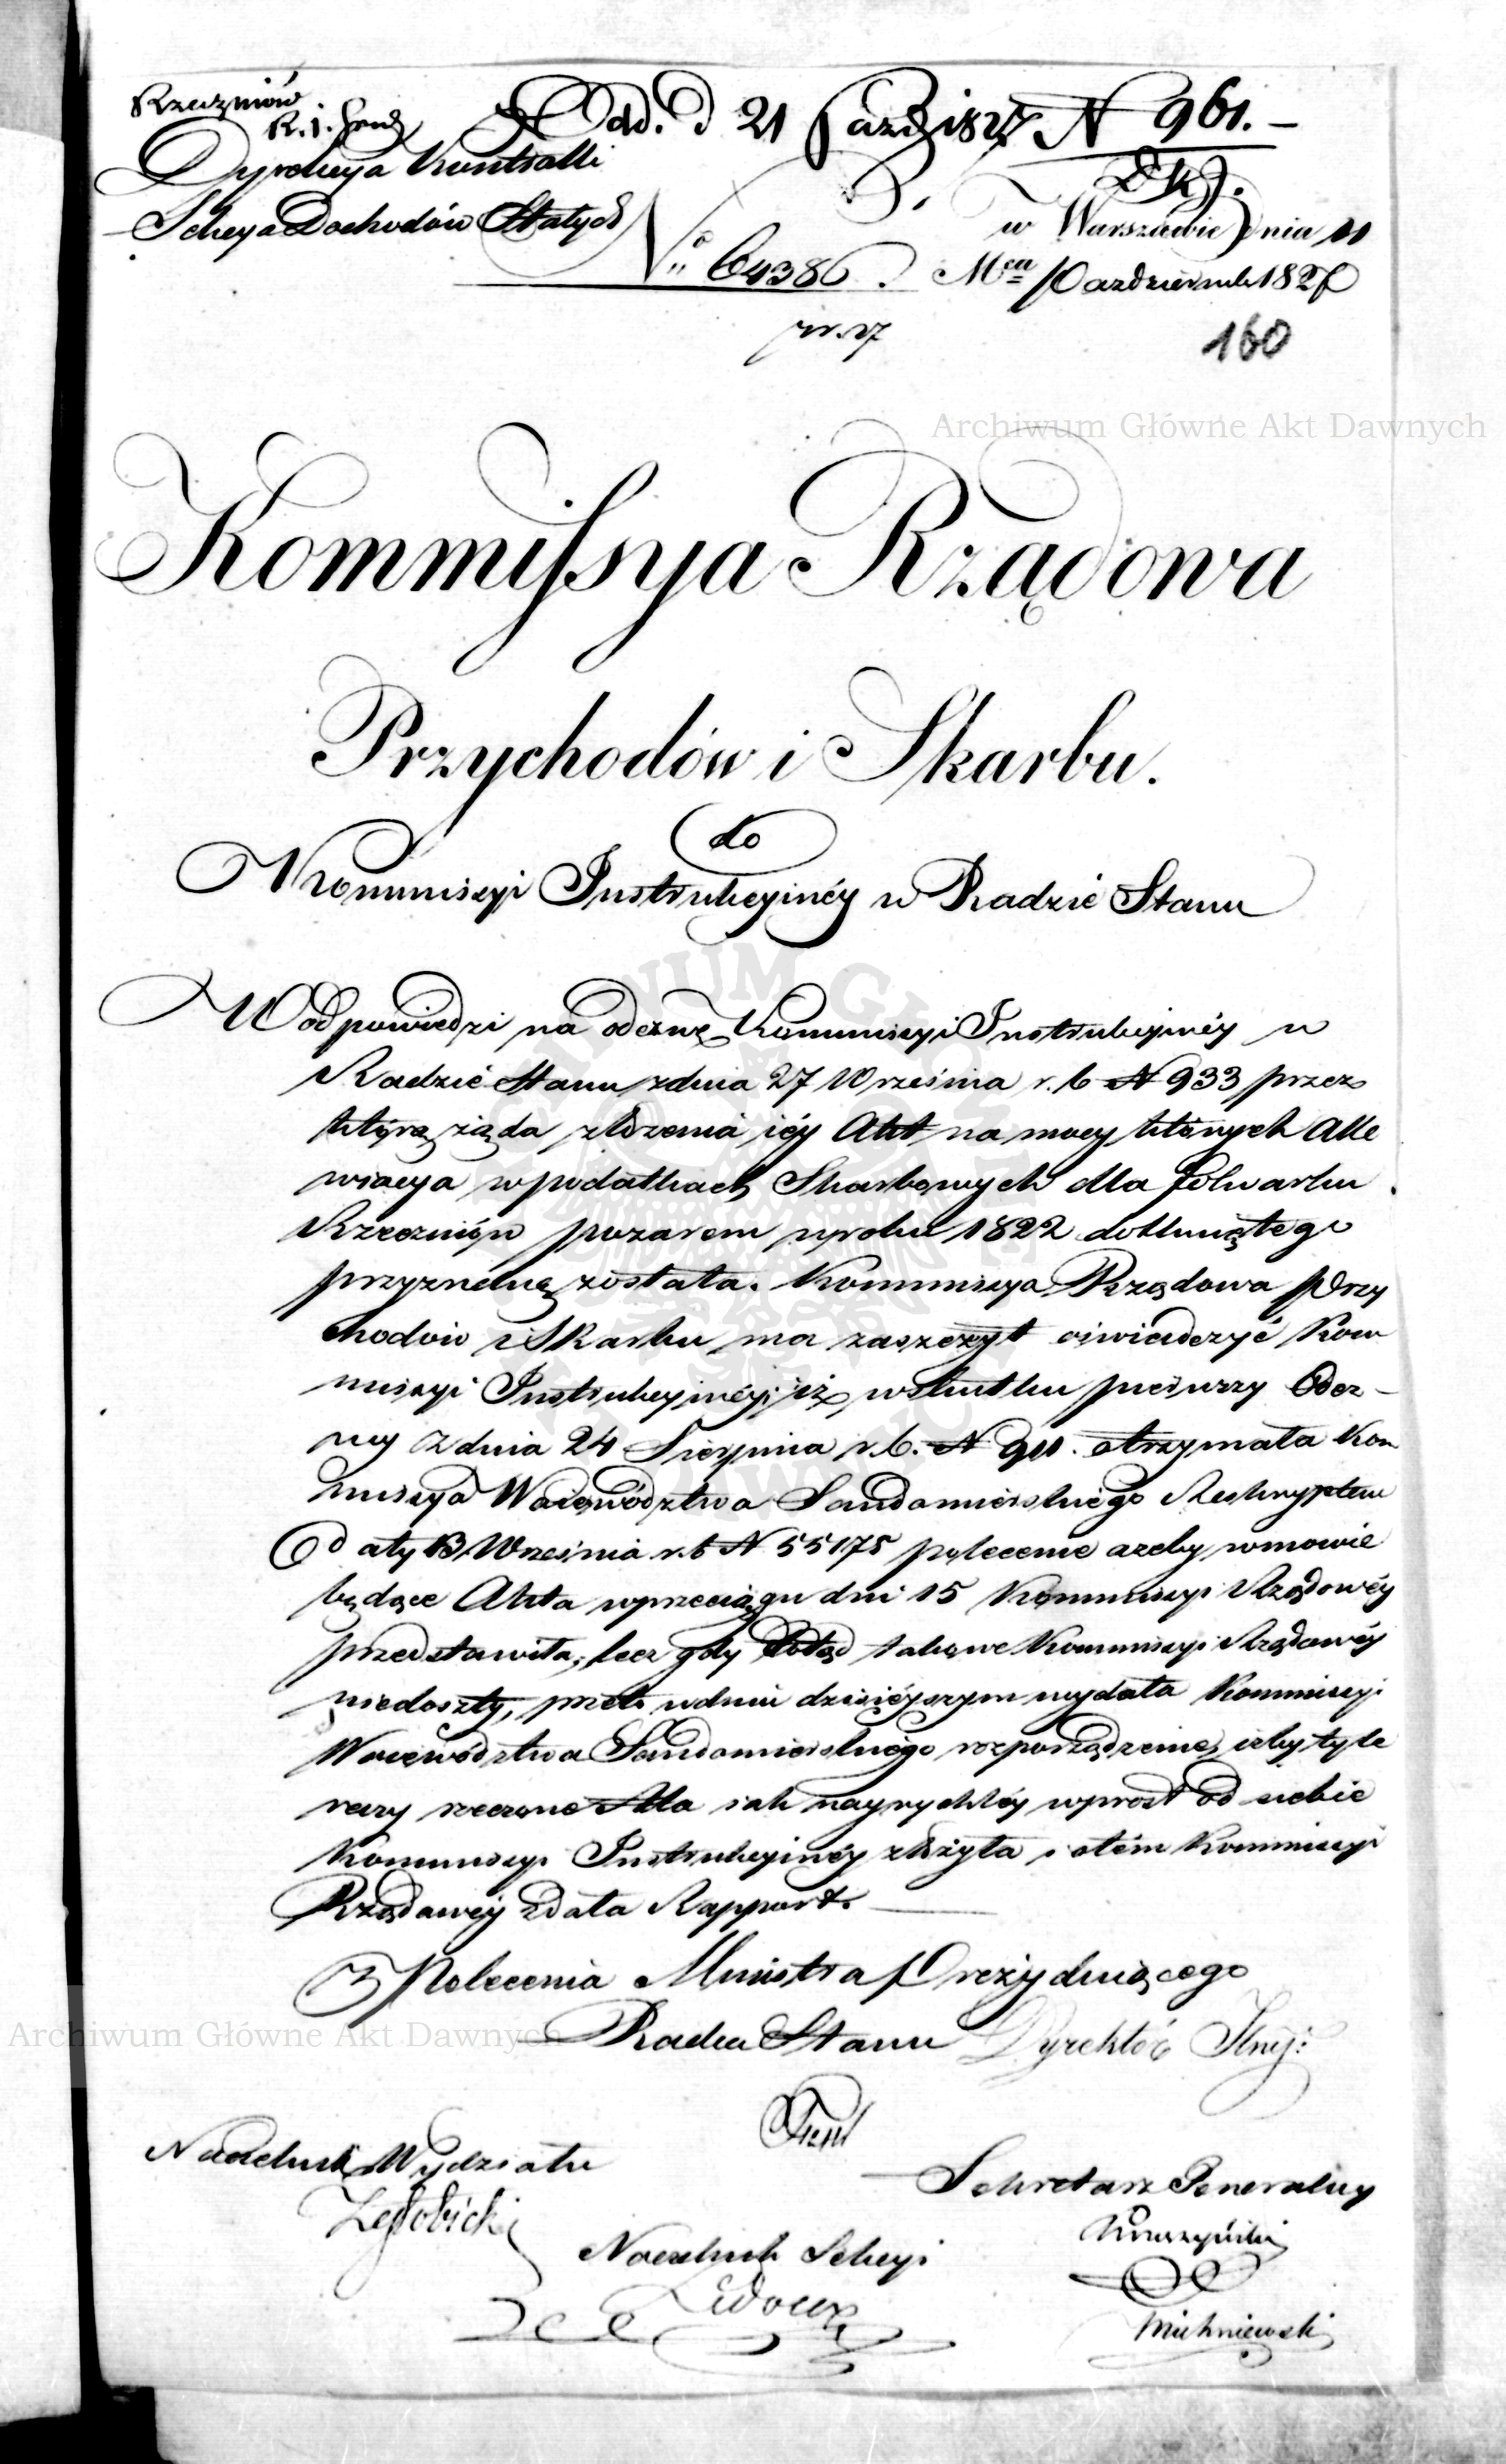 Rzeczniów
Dyrekcya Kontrolli
Sekcya Dochodów Stałych
Odd. d 21 Paździer 1827 N 961. –
No 64386.
w Warszawie Dnia 11
Mca Października 1827
160
Archiwum Główne Akt Dawnych
Kommissya Rządowa
Przychodów i Skarbu.
do
Kommissyi Instrukcyinéy w Radzie Stanu
W odpowiedzi na odezwę Kommissyi Instrukcyinéy w
Radzie Stanu z dnia 27 Września r. b N 933 przez
którą żąda złożenia iéy Akt na mocy których Alle
wiacya w podatkach Skarbowych dla folwarku
Rzeczniów pożarem w roku 1822 dotkniętego
przyznaną została. Kommissya Rządowa Przy
chodów i Skarbu ma zaszczyt oświadczyć Kom
missyi Instrukcyinéy; iż w skutku pierwszy Odez–
wy z dnia 24 Sierpnia r. b. N 911. otrzymała Kom
missya Woiewództwa Sandomierskiego Reskryptem
Daty 13 Września r. b N 55175 polecenie ażeby w mowie
będące Akta w przeciągu dni 15 Kommissyi Rządowéy
przedstawiła, lecz gdy dotąd takowe Kommissyi Rządowéy
niedoszły, przeto w dniu dzisiéyszym wydała Kommissyi
Woiewództwa Sandomierskiego rozporządzenie, iżby tyle
razy rzeczone Akta iak nayrychléy wprost od siebie
Kommissyi Instrukcyinéy złożyła i o tém Kommissyi
Rządowéy zdała Rapport.
Z Polecenia Ministra Prezyduiącego
Radca Stanu Dyrektór Jlny:
Archiwum Główne Akt Dawnych
Naczelnik Wydziału
Sekretarz Generalny
Naczelnik Sekcyi
Michniewski